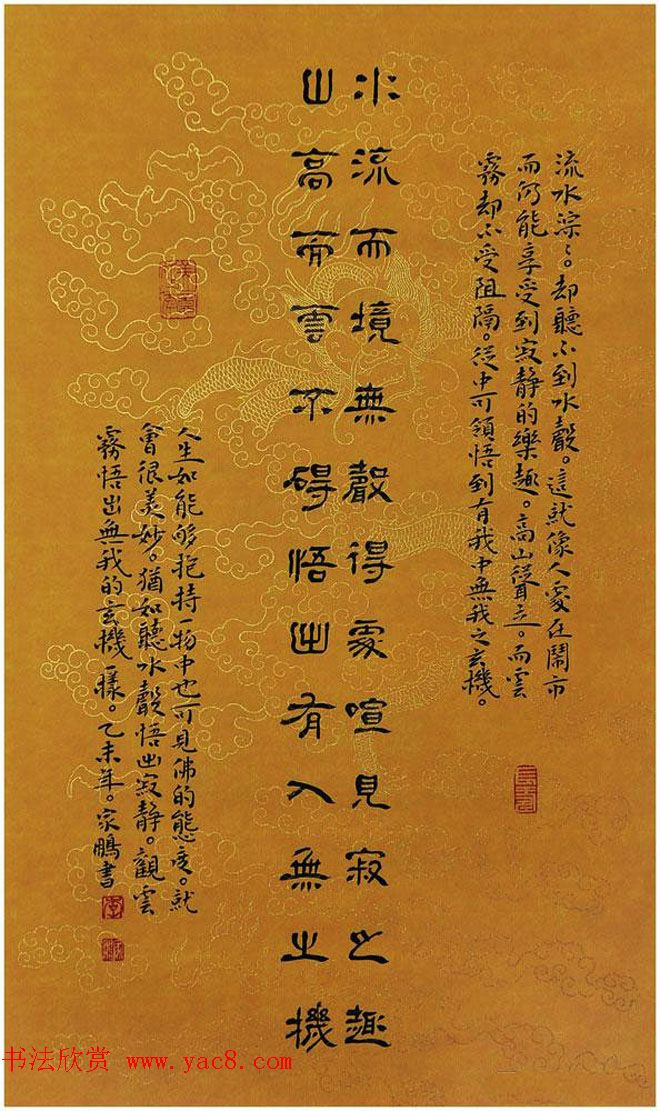 流水淙々。却聽不到水聲。這就像人處在鬧市
而仍能享受到寂靜的樂趣。高山聳立。而雲
霧却不受阻隔。從中可領悟到有我中無我之玄機。
水流而境無聲得處喧見寂之趣
山高而雲不碍悟出有入無之機
人生如能够抱持一物中也可見佛的態度。就
會很美妙。猶如聽水聲悟出寂靜。觀雲
霧悟出無我的玄機一樣。乙未年。家鵬書
书法欣赏 www.yac8.com